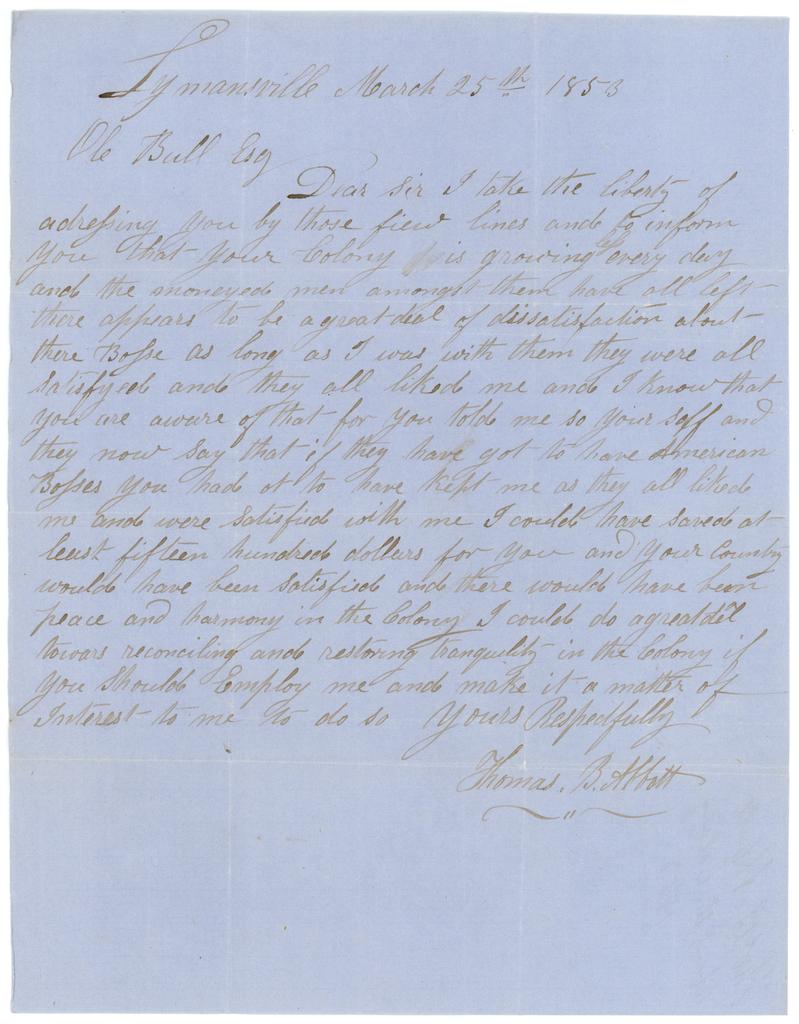 Lymansville March 25th 1853
Ole Bull Esq
Dear Sir I take the liberty of
adressing you by those fiew lines and to inform
you that your Colony is growing every day
and the moneyed men amongst them have all left
there appears to be a great deal of dissatisfaction about
there Bosse as long as I was with them they were all
satisfyed and they all liked me and I know that
you are aware of that for you told me so your self and
they now say that if they have got to have American
Bosses you had ot to have kept me as they all liked
me and were satisfied with me I could have saved at
least fifteen hundred dollars for you and your Country
would have been satisfied and there would have been
peace and harmony in the Colony I could do a great del
towars reconciling and restoring tranquility in the Colony if
you should Employ me and make it a matter of
Interest to me to do so Yours Respectfully
Thomas. B. Abbott